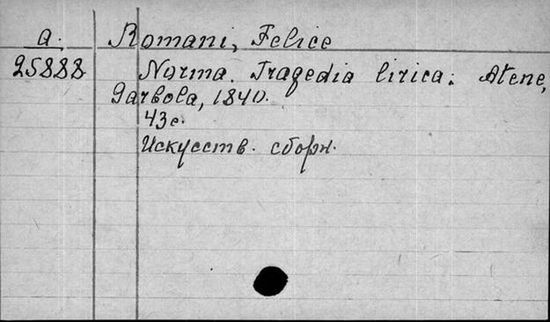 a.
25888
Romani, Felice
Norma. Tragedia lirica. Atene,
Garbola, 1840.
43с.
Искусств. сборн.